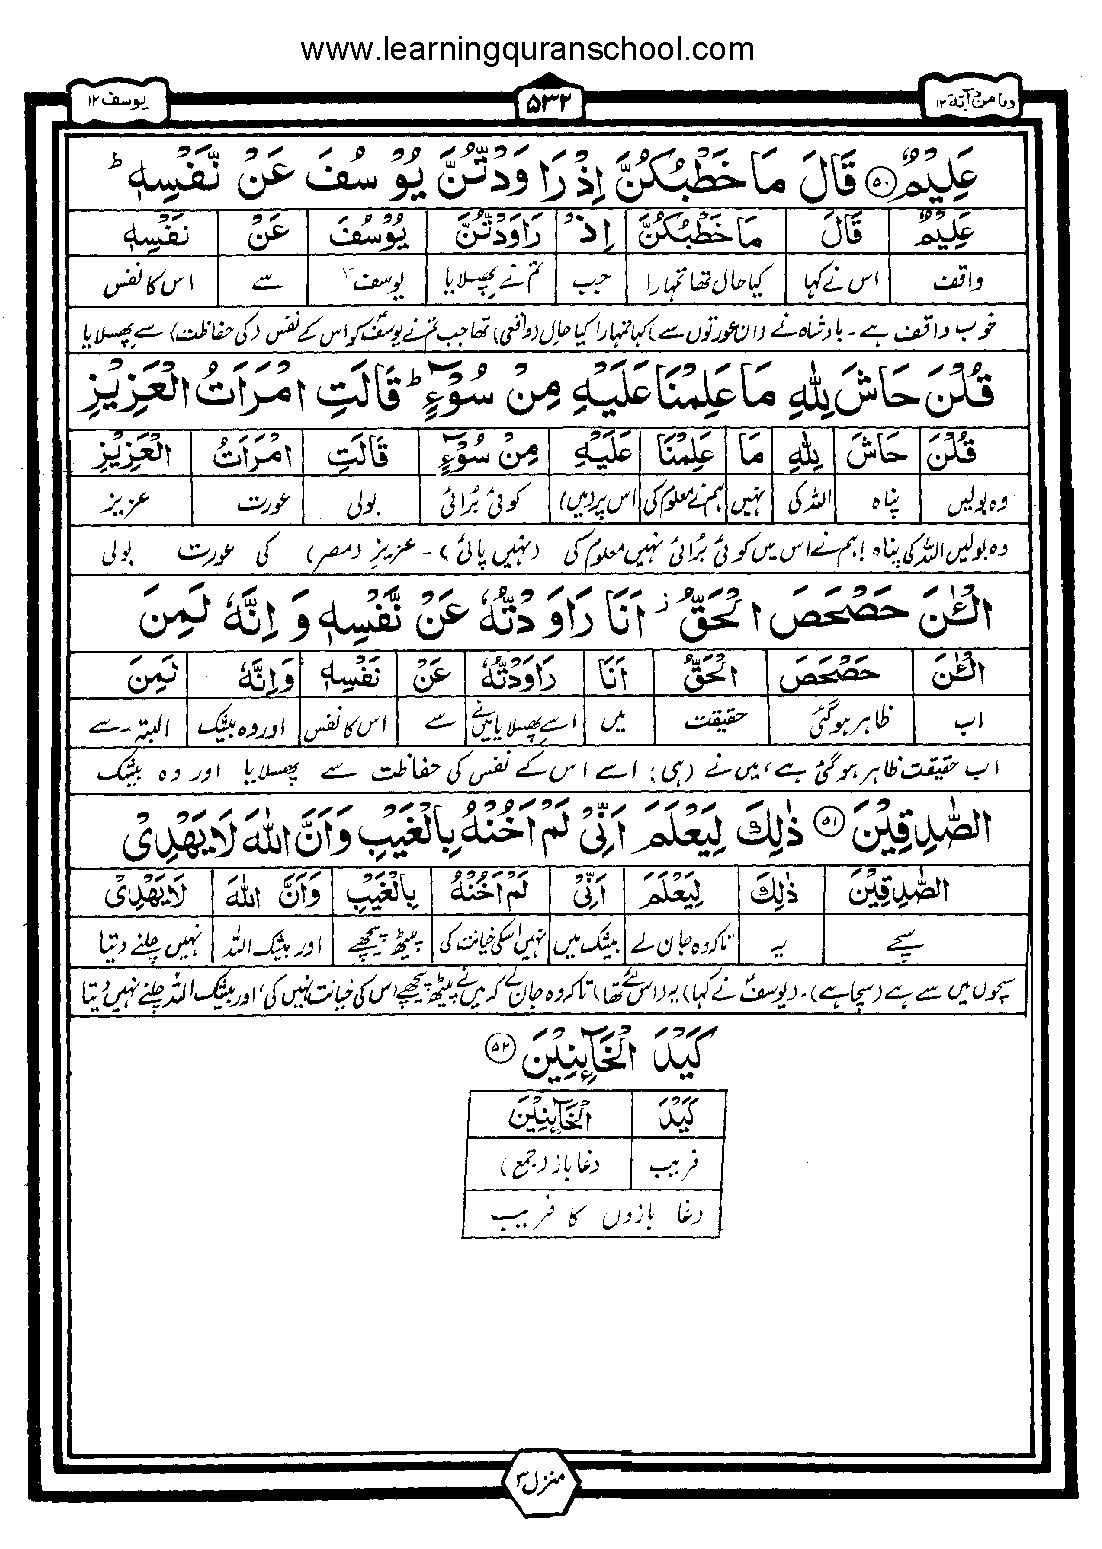 www.learningquranschool.com
وما من دآبة ۱۲
۵۳۲
یوسف ۱۲
عَلِیْمٌ ۝۵۰ قَالَ مَا خَطْبُكُنَّ اِذْ رَاوَدْتُّنَّ یُوْسُفَ عَنْ نَّفْسِهٖ ؕ
عَلِیْمٌ قَالَ مَا خَطْبُكُنَّ اِذْ رَاوَدْتُّنَّ یُوْسُفَ عَنْ نَفْسِهٖ
واقف اس نے کہا کیا حال تھا تمہارا جب تم نے پھسلایا یوسف سے اس کا نفس
خوب واقف ہے۔ بادشاہ نے (ان عورتوں سے) کہا تمہارا کیا حال (واقعی) تھا جب تم نے یوسفؑ کو اس کے نفس (کی حفاظت) سے پھسلایا
قُلْنَ حَاشَ لِلّٰهِ مَا عَلِمْنَا عَلَیْهِ مِنْ سُوْٓءٍ ؕ قَالَتِ امْرَاَتُ الْعَزِیْزِ
قُلْنَ حَاشَ لِلّٰهِ مَا عَلِمْنَا عَلَیْهِ مِنْ سُوْٓءٍ قَالَتِ امْرَاَتُ الْعَزِیْزِ
وہ بولیں پناہ اللہ کی نہیں ہم نے معلوم کی اس پر (میں) کوئی بُرائی بولی عورت عزیز
وہ بولیں اللہ کی پناہ! ہم نے اس میں کوئی بُرائی نہیں معلوم کی (نہیں پائی)۔ عزیزِ (مصر) کی عورت بولی
الْـٰٔنَ حَصْحَصَ الْحَقُّ ؗ اَنَا رَاوَدْتُّهٗ عَنْ نَّفْسِهٖ وَ اِنَّهٗ لَمِنَ
الْـٰٔنَ حَصْحَصَ الْحَقُّ اَنَا رَاوَدْتُّهٗ عَنْ نَفْسِهٖ وَاِنَّهٗ لَمِنَ
اب ظاہر ہوگئی حقیقت میں اسے پھسلایا میں نے سے اس کا نفس اور وہ بیشک البتہ۔سے
اب حقیقت ظاہر ہوگئی ہے، میں نے (ہی) اسے اس کے نفس کی حفاظت سے پھسلایا اور وہ بیشک
الصّٰدِقِیْنَ ۝۵۱ ذٰلِكَ لِیَعْلَمَ اَنِّیْ لَمْ اَخُنْهُ بِالْغَیْبِ وَاَنَّ اللّٰهَ لَا یَهْدِیْ
الصّٰدِقِیْنَ ذٰلِكَ لِیَعْلَمَ اَنِّیْ لَمْ اَخُنْهُ بِالْغَیْبِ وَاَنَّ اللّٰهَ لَا یَهْدِیْ
سچے یہ تاکہ وہ جان لے بیشک میں نہیں اسکی خیانت کی پیٹھ پیچھے اور بیشک اللہ نہیں چلنے دیتا
سچوں میں سے ہے (سچا ہے)۔ (یوسفؑ نے کہا) یہ (اس لئے تھا) تاکہ وہ جان لے کہ میں نے پیٹھ پیچھے اس کی خیانت نہیں کی، اور بیشک اللہ چلنے نہیں دیتا
كَیْدَ الْخَآىِٕنِیْنَ ۝۵۲
كَیْدَ الْخَآىِٕنِیْنَ
فریب دغا باز (جمع)
دغا بازوں کا فریب
منزل ۳